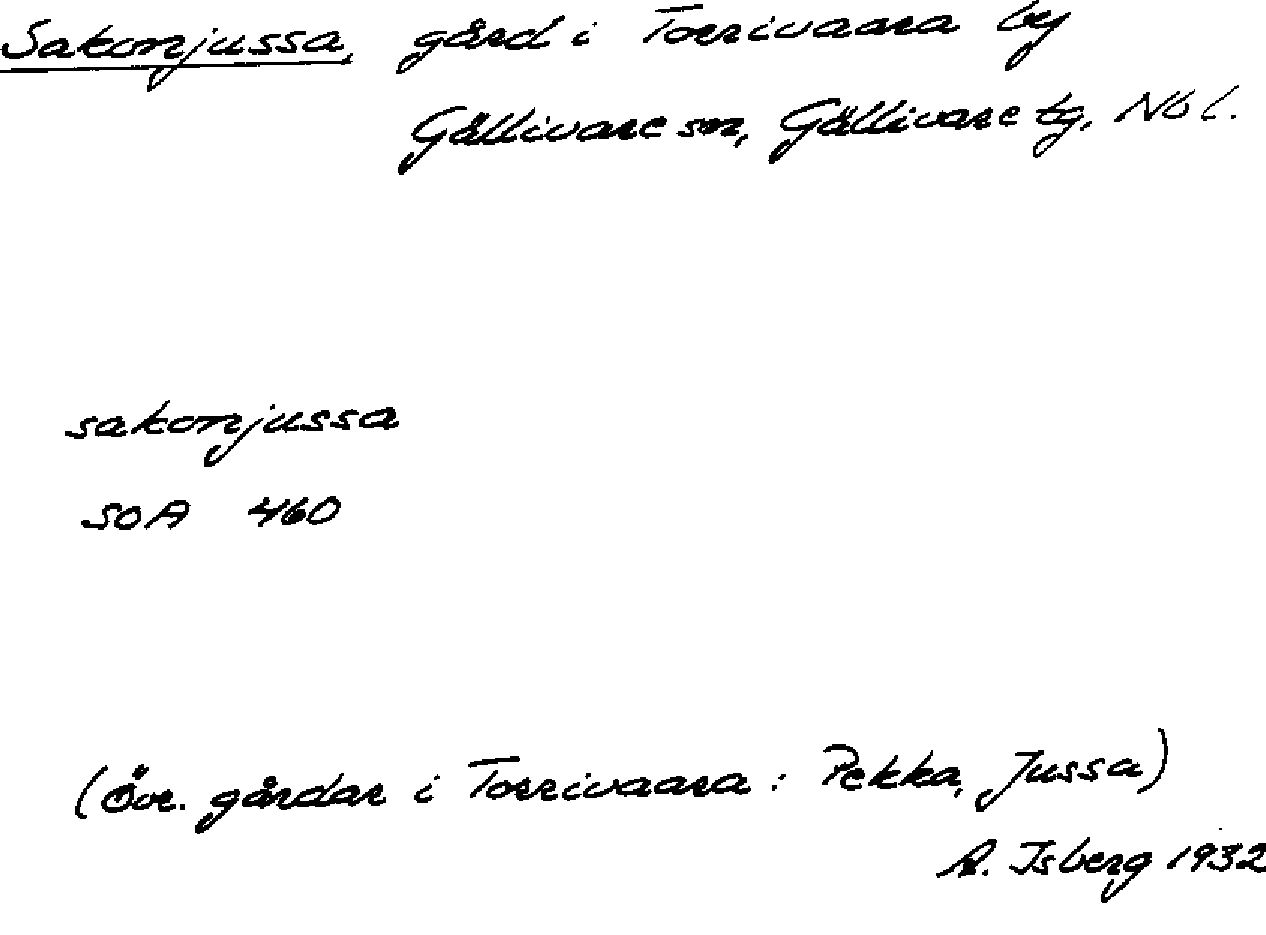 Sakonjussa, gård i Torrivaara by
Gällivare sn, Gällivare tg, Nb l.
sakonjussa
SOA 460
(Övr. gårdar i Torrivaara: Pekka, Jussa)
A. Isberg 1932